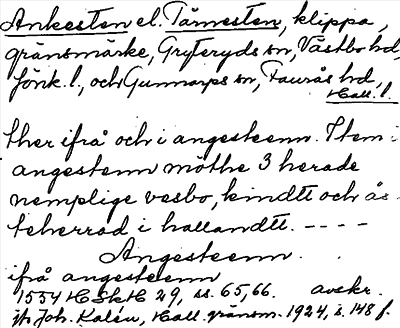 Ankesten el. Tåmesten, klippa,
gränsmärke, Gryteryds sn, Västbo hd,
Jönk. l., och Gunnarps sn, Faurås hd,
Hall. l.
ther ifrå och i angesteenn. Item:
angestenn möthe 3 herade
nemplige vesbo, kindtt och ås-
teherrad i hallandtt. - - - -
Angesteenn.
ifrå angesteenn
1554 HSkH 29, ss. 65, 66. avskr.
jfr Joh. Kalén, Hall. gränsm. 1924, s. 148 f.